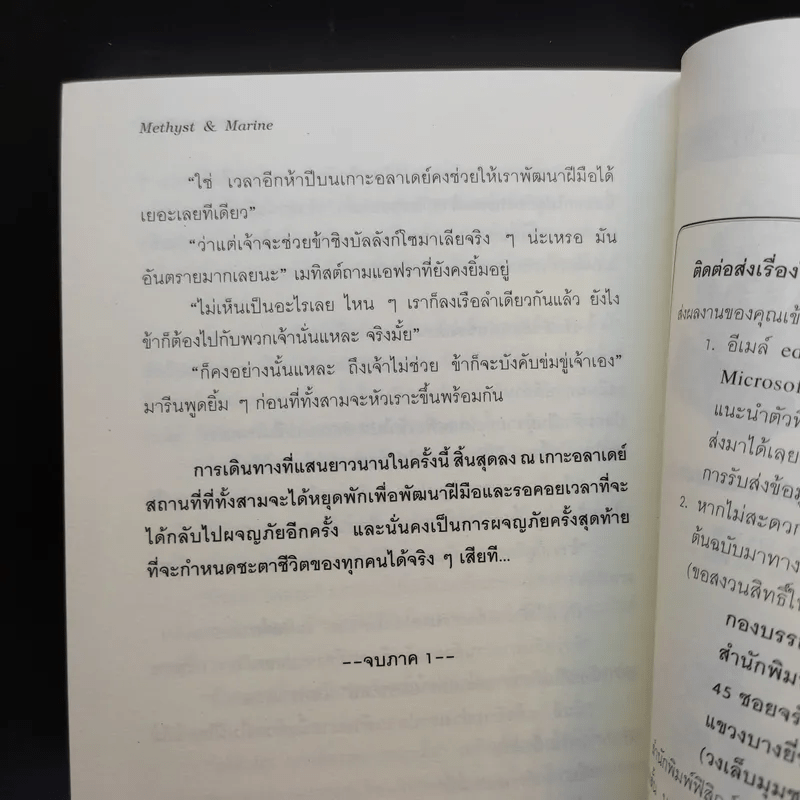 Methyst & Marine
“ใช่ เวลาอีกห้าปีบนเกาะอลาเดย์คงช่วยให้เราพัฒนาฝีมือได้
เยอะเลยทีเดียว”
“ว่าแต่เจ้าจะช่วยข้าชิงบัลลังก์โซมาเลียจริง ๆ น่ะเหรอ มัน
อันตรายมากเลยนะ” เมทิสต์ถามแอฟราที่ยังคงยิ้มอยู่
“ไม่เห็นเป็นอะไรเลย ไหน ๆ เราก็ลงเรือลำเดียวกันแล้ว ยังไง
ข้าก็ต้องไปกับพวกเจ้านั่นแหละ จริงมั้ย”
“ก็คงอย่างนั้นแหละ ถึงเจ้าไม่ช่วย ข้าก็จะบังคับข่มขู่เจ้าเอง”
มารีนพูดยิ้ม ๆ ก่อนที่ทั้งสามจะหัวเราะขึ้นพร้อมกัน
การเดินทางที่แสนยาวนานในครั้งนี้ สิ้นสุดลง ณ เกาะอลาเดย์
สถานที่ที่ทั้งสามจะได้หยุดพักเพื่อพัฒนาฝีมือและรอคอยเวลาที่จะ
ได้กลับไปผจญภัยอีกครั้ง และนั่นคงเป็นการผจญภัยครั้งสุดท้าย
ที่จะกำหนดชะตาชีวิตของทุกคนได้จริง ๆ เสียที...
--จบภาค 1--
ติดต่อส่งเรื่อง
ส่งผลงานของคุณเข้า
1. อีเมล์ ed
Microsof
แนะนำตัว
ส่งมาได้เลย
การรับส่งข้อมู
2. หากไม่สะดวก
ต้นฉบับมาทาง
(ขอสงวนสิทธิ์ใ
กองบรร
สำนักพิม
45 ซอยจรั
แขวงบางยี่
(วงเล็บมุมซ
สำนักพิมพ์ฟิสิก